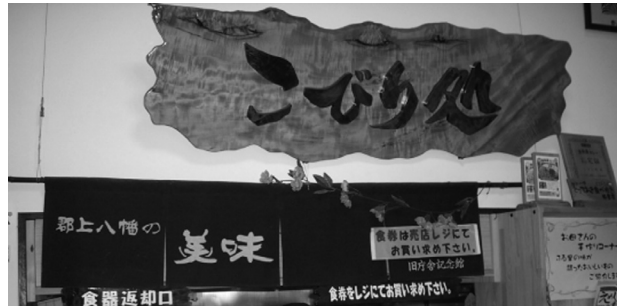 こびり処
郡上八幡の
美味
食券は売店レジにて
お買い求め下さい。
旧庁舎記念館
食器返却口
食券をレジにてお買い求め下さい。
お母さんの
手作りコーナー